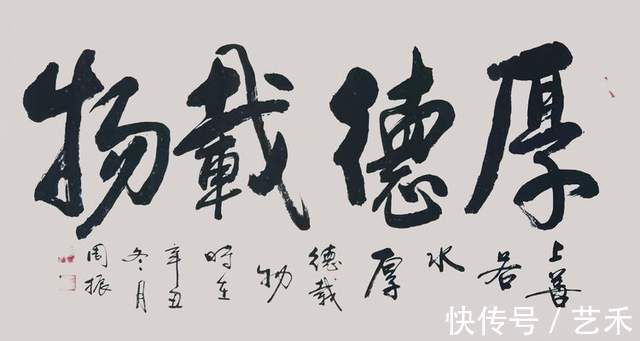 厚德載物
上善若水厚德載物時在辛丑冬月周振
快传号/艺禾